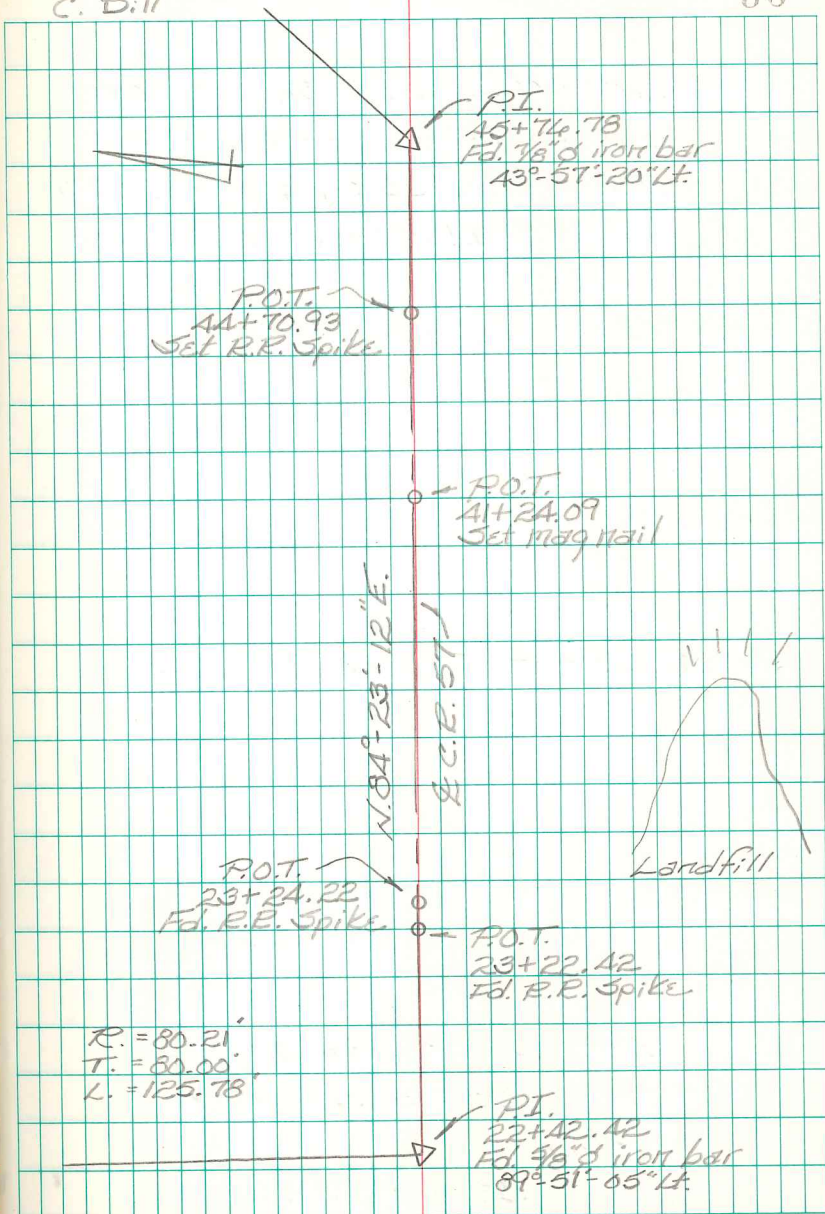 C. Dill
P.I.
45+74.78
Fd. 7/8"ø iron bar
43°-57'-20"Lt.
P.O.T.
44+70.93
Set R.R. Spike
P.O.T.
41+24.09
Set mag nail
N.84°-23'-12"E.
℄ C.R. 57
Landfill
P.O.T.
23+24.22
Fd. R.R. Spike
P.O.T.
23+22.42
Fd. R.R. Spike
R. = 80.21'
T. = 80.00'
L. = 125.78'
P.I.
22+42.42
Fd. 5/8"ø iron bar
89°-51'-05"Lt.